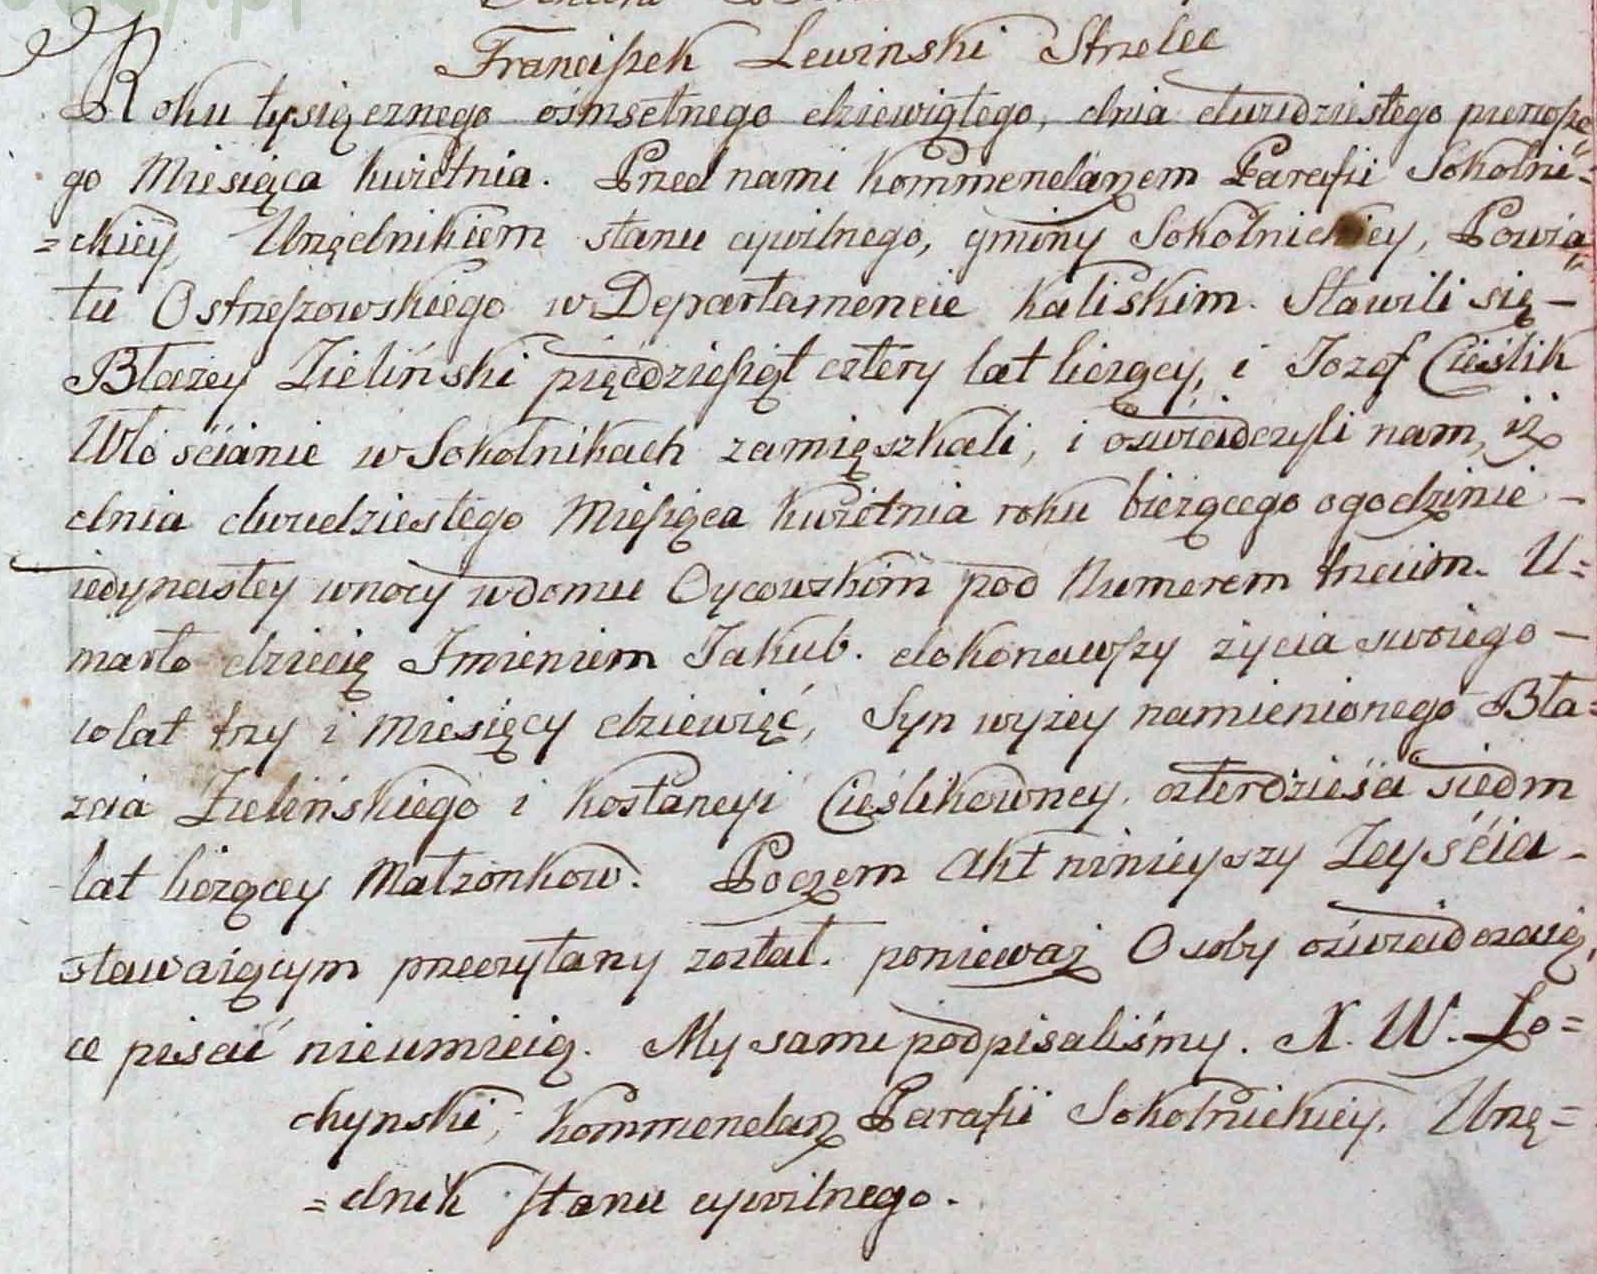 Franciszek Lewinski Strzelec
Roku tysiącznego ośmsetnego dziewiątego, dnia dwudziestego pierwsze
go Miesiąca kwietnia. Przed nami Kommendarzem Parafii Sokolni=
=ckiey, Urzędnikiem stanu cywilnego, gminy Sokolnickiey, Powia=
tu Ostrzeszowskiego w Departamencie Kaliskim. Stawili się –
Błażey Zieliński pięćdziesiąt cztery lat liczący, i Jozef Cieślik
Włościanie w Sokolnikach zamięszkali, i oświadczyli nam, iż
dnia dwudziestego Miesiąca kwietnia roku bieżącego o godzinie –
iedynastey w nocy w domu Oycowskim pod Numerem trzecim. U=
marło dziecię Imieniem Jakub. dokonawszy życia swoiego –
w lat trzy i miesięcy dziewięć, Syn wyżey namienionego Bła=
zeia Zielińskiego i Kostancyi Cieślikowney. czterdzieści siedm
lat liczącey Małżonkow. Poczem Akt ninieyszy Zeyścia –
stawaiącym przeczytany został. ponieważ Osoby oświadczaią,
ce pisać nieumieią. My sami podpisaliśmy. X. W. Ło=
chynski, Kommendarz Parafii Sokolnickiey, Urzę=
=dnik Stanu cywilnego.